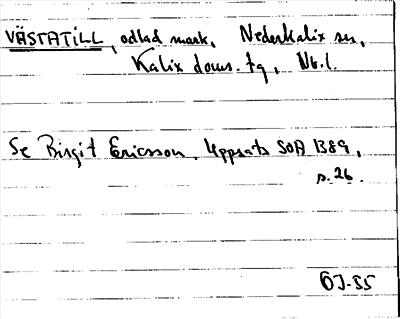 VÄSTATILL, odlad mark, Nederkalix sn,
Kalix doms. tg, Nb.l.
Se Birgit Ericsson, Uppsats SOA 1389,
s. 26.
ÖJ-55